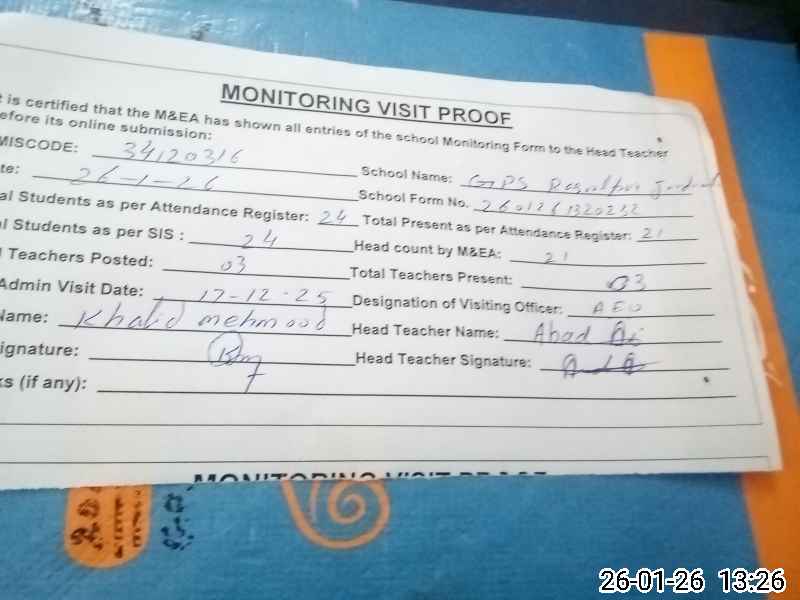 MONITORING VISIT PROOF
t is certified that the M&EA has shown all entries of the school Monitoring Form to the Head Teacher
efore its online submission:
MISCODE: 34120316 School Name: GPS
te: 26-1-26 School Form No. 2601261320232
al Students as per Attendance Register: 24 Total Present as per Attendance Register: 21
al Students as per SIS : 24 Head count by M&EA: 21
l Teachers Posted: 03 Total Teachers Present: 03
Admin Visit Date: 17-12-25 Designation of Visiting Officer: AEO
Name: Khalid mehmood Head Teacher Name: Ahad
ignature: Head Teacher Signature:
ks (if any):
MONITORING VISIT PROOF
26-01-26 13:26